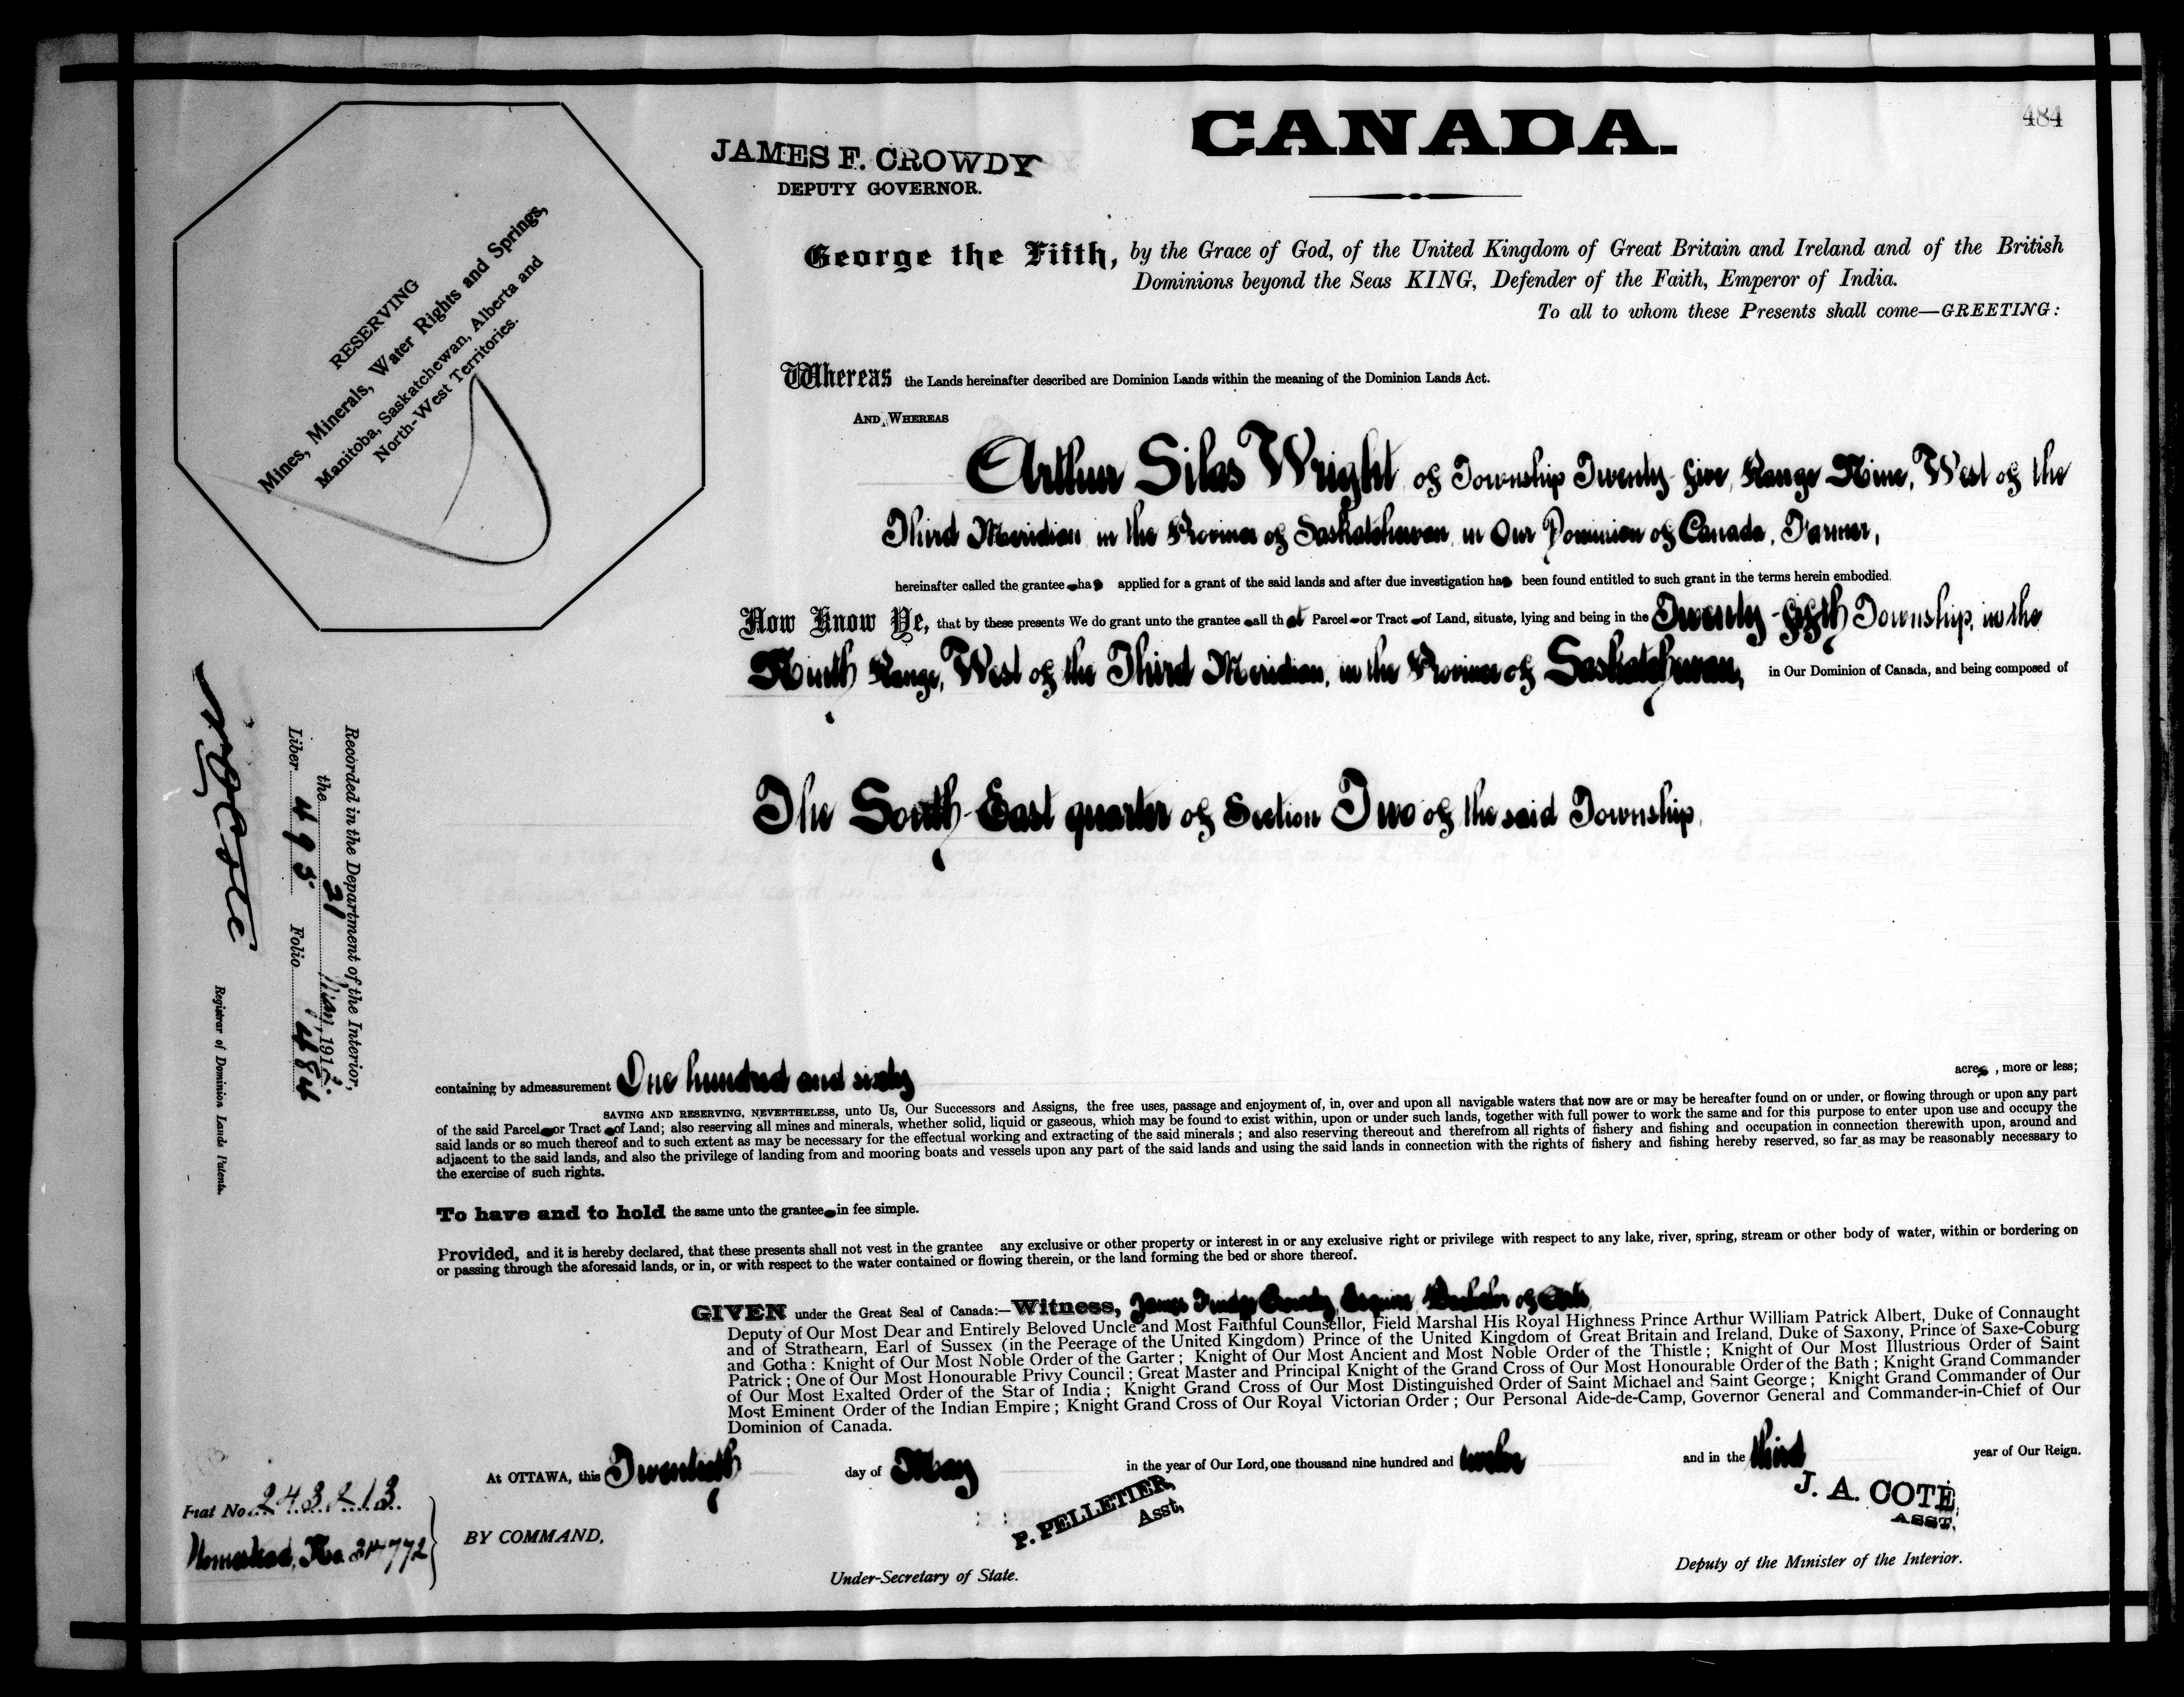 484
CANADA.
JAMES F. CROWDY
DEPUTY GOVERNOR.
RESERVING
Mines, Minerals, Water Rights and Springs,
Manitoba, Saskatchewan, Alberta and
North-West Territories.
George the Fifth, by the Grace of God, of the United Kingdom of Great Britain and Ireland and of the British
Dominions beyond the Seas KING, Defender of the Faith, Emperor of India.
To all to whom these Presents shall come—GREETING:
Whereas the Lands hereinafter described are Dominion Lands within the meaning of the Dominion Lands Act.
AND WHEREAS
Arthur Silas Wright of Township Twenty-five, Range Nine, West of the
Third Meridian in the Province of Saskatchewan in Our Dominion of Canada, Farmer,
hereinafter called the grantee has applied for a grant of the said lands and after due investigation has been found entitled to such grant in the terms herein embodied.
Now Know Ye, that by these presents We do grant unto the grantee all that Parcel or Tract of Land, situate, lying and being in the Twenty-fifth Township, in the
Ninth Range, West of the Third Meridian, in the Province of Saskatchewan, in Our Dominion of Canada, and being composed of
The South-East quarter of Section Two of the said Township,
containing by admeasurement One hundred and sixty acres, more or less;
SAVING AND RESERVING, NEVERTHELESS, unto Us, Our Successors and Assigns, the free uses, passage and enjoyment of, in, over and upon all navigable waters that now are or may be hereafter found on or under, or flowing through or upon any part
of the said Parcel or Tract of Land; also reserving all mines and minerals, whether solid, liquid or gaseous, which may be found to exist within, upon or under such lands, together with full power to work the same and for this purpose to enter upon use and occupy the
said lands or so much thereof and to such extent as may be necessary for the effectual working and extracting of the said minerals; and also reserving thereout and therefrom all rights of fishery and fishing and occupation in connection therewith upon, around and
adjacent to the said lands, and also the privilege of landing from and mooring boats and vessels upon any part of the said lands and using the said lands in connection with the rights of fishery and fishing hereby reserved, so far as may be reasonably necessary to
the exercise of such rights.
To have and to hold the same unto the grantee in fee simple.
Provided, and it is hereby declared, that these presents shall not vest in the grantee any exclusive or other property or interest in or any exclusive right or privilege with respect to any lake, river, spring, stream or other body of water, within or bordering on
or passing through the aforesaid lands, or in, or with respect to the water contained or flowing therein, or the land forming the bed or shore thereof.
GIVEN under the Great Seal of Canada:—Witness, James Crowdy, Esquire, Bachelor of Arts,
Deputy of Our Most Dear and Entirely Beloved Uncle and Most Faithful Counsellor, Field Marshal His Royal Highness Prince Arthur William Patrick Albert, Duke of Connaught
and of Strathearn, Earl of Sussex (in the Peerage of the United Kingdom) Prince of the United Kingdom of Great Britain and Ireland, Duke of Saxony, Prince of Saxe-Coburg
and Gotha: Knight of Our Most Noble Order of the Garter; Knight of Our Most Ancient and Most Noble Order of the Thistle; Knight of Our Most Illustrious Order of Saint
Patrick; One of Our Most Honourable Privy Council; Great Master and Principal Knight of the Grand Cross of Our Most Honourable Order of the Bath; Knight Grand Commander
of Our Most Exalted Order of the Star of India; Knight Grand Cross of Our Most Distinguished Order of Saint Michael and Saint George; Knight Grand Commander of Our
Most Eminent Order of the Indian Empire; Knight Grand Cross of Our Royal Victorian Order; Our Personal Aide-de-Camp, Governor General and Commander-in-Chief of Our
Dominion of Canada.
At OTTAWA, this Twentieth day of May in the year of Our Lord, one thousand nine hundred and twelve and in the third year of Our Reign.
P. PELLETIER,
Asst,
J. A. COTÉ,
ASST.
BY COMMAND,
Under-Secretary of State.
Deputy of the Minister of the Interior.
Fiat No. 243213
Homestead, No. 314772
Recorded in the Department of the Interior,
the 31 May, 1912.
Liber 495 Folio 484
N O Coté
Registrar of Dominion Lands Patents.